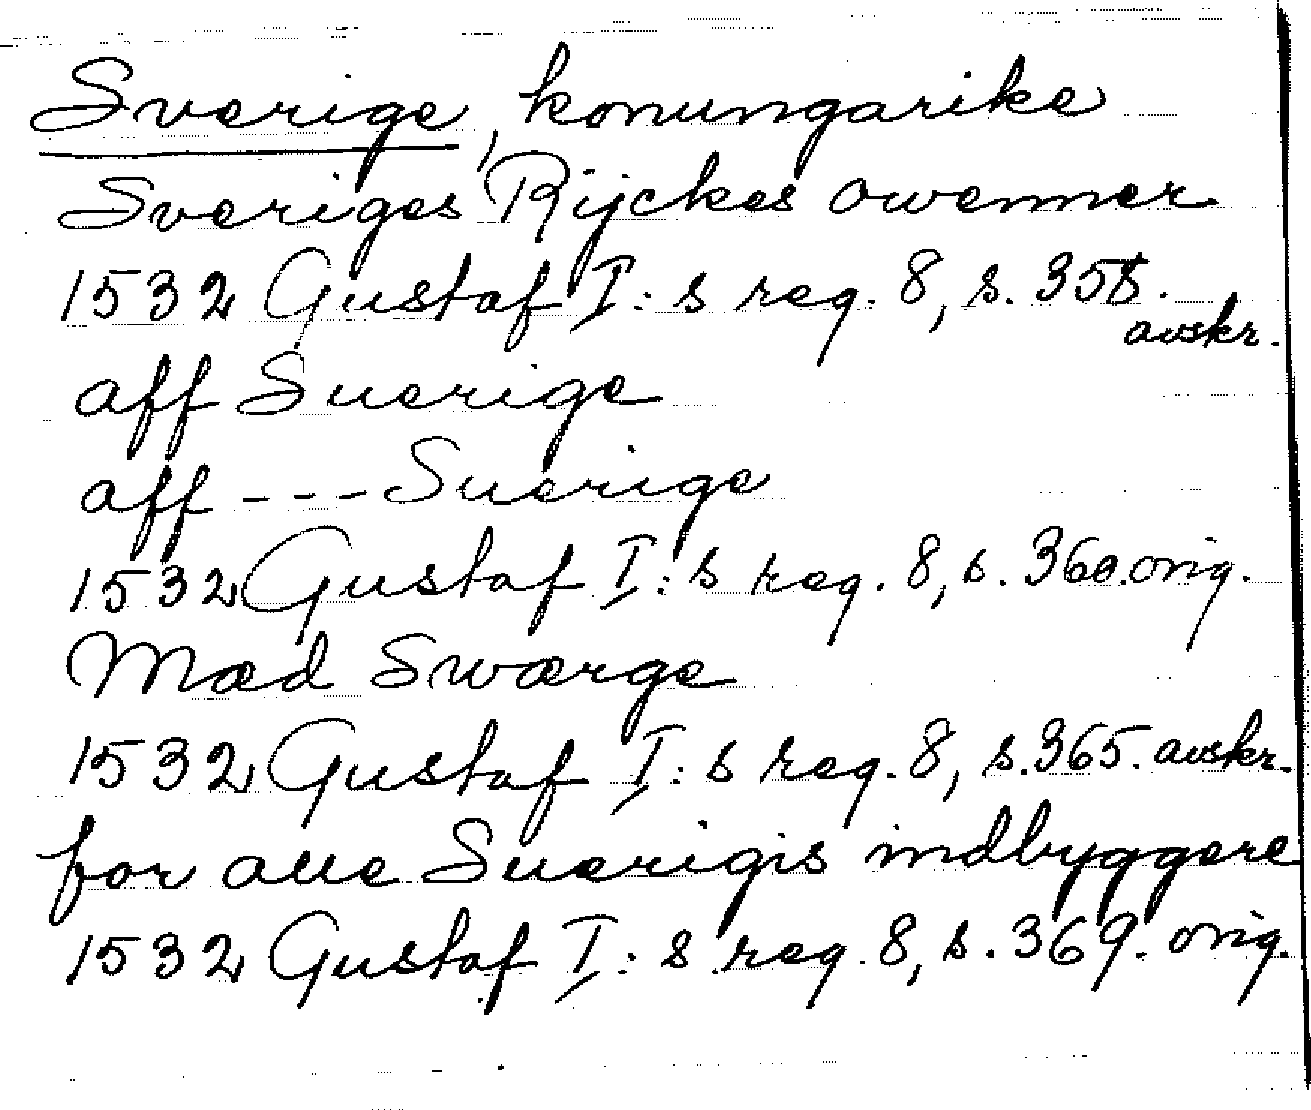 Sverige, konungarike
Sveriges Rijckes owenner
1532 Gustaf I:s reg. 8, s. 358.
avskr.
aff Suerige
aff --- Suerige
1532 Gustaf I:s reg. 8, s. 360. orig.
Mæd Swærge
1532 Gustaf I:s reg. 8, s. 365. avskr.
for alle Suerigis indbyggere
1532 Gustaf I:s reg. 8, s. 369. orig.